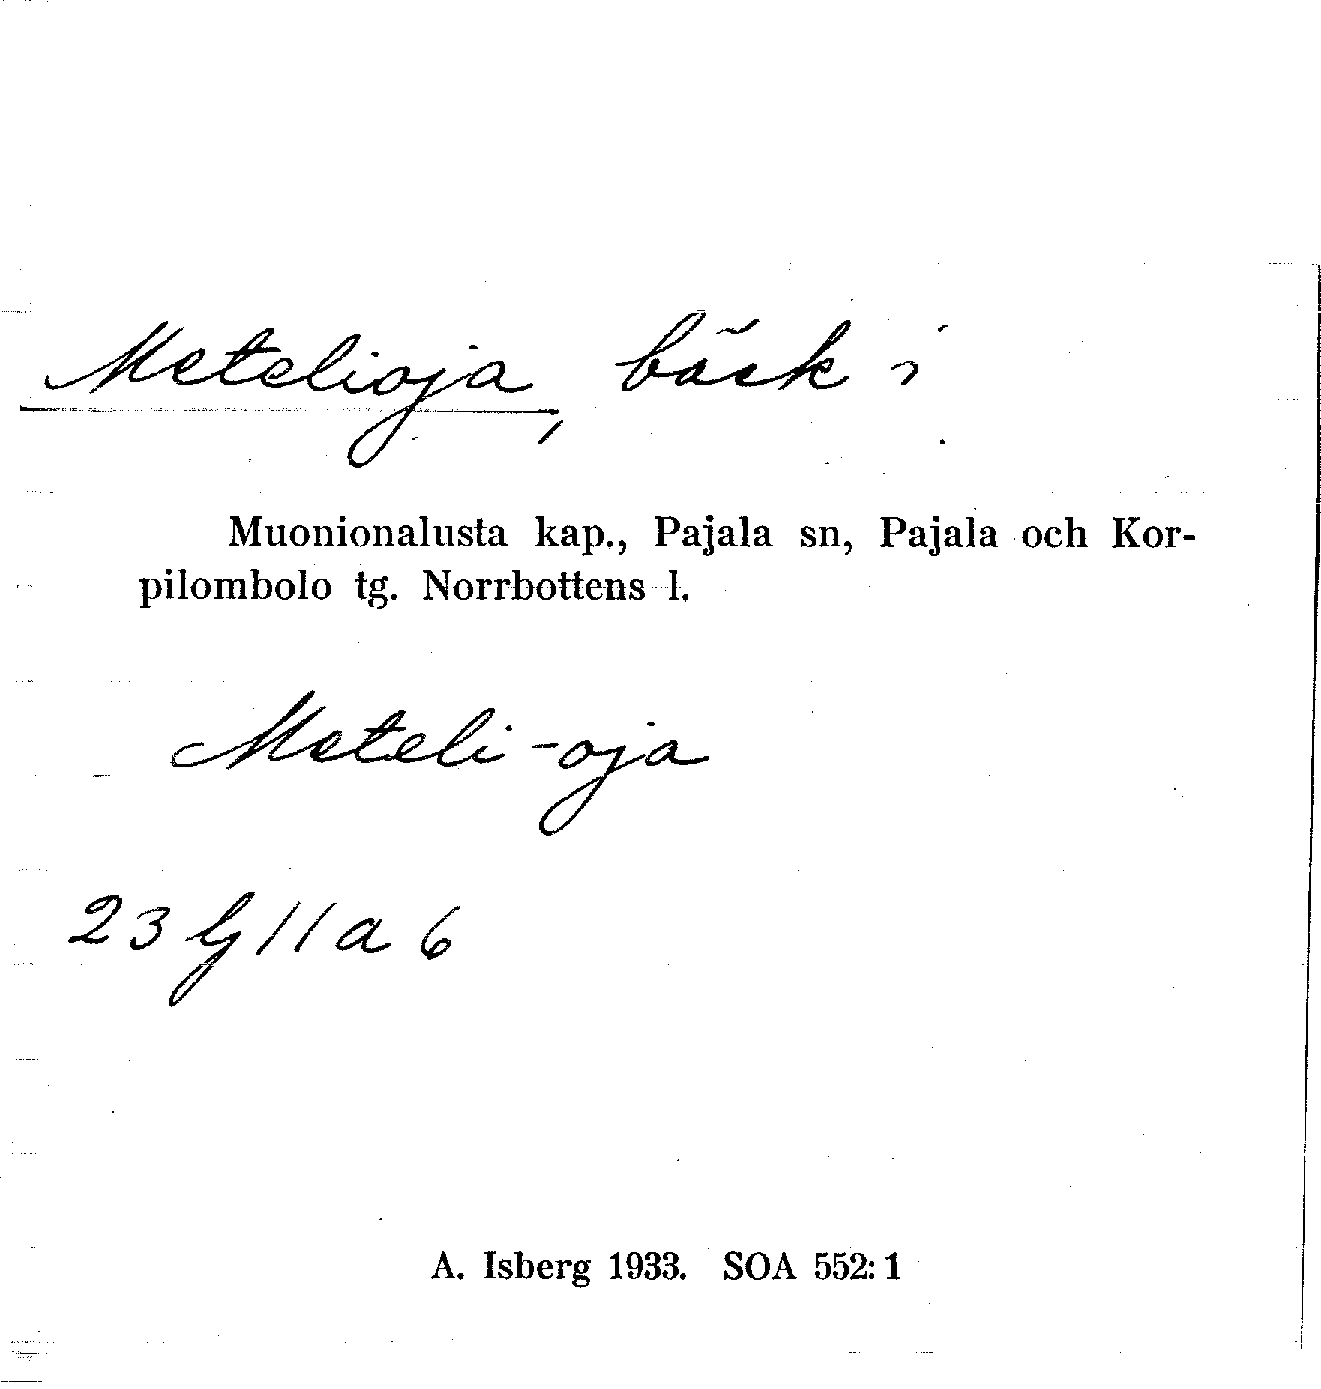 Metelioja, bäck i
Muonionalusta kap., Pajala sn, Pajala och Kor-
pilombolo tg. Norrbottens l.
Meteli-oja
23 lj 11 a 6
A. Isberg 1933. SOA 552:1